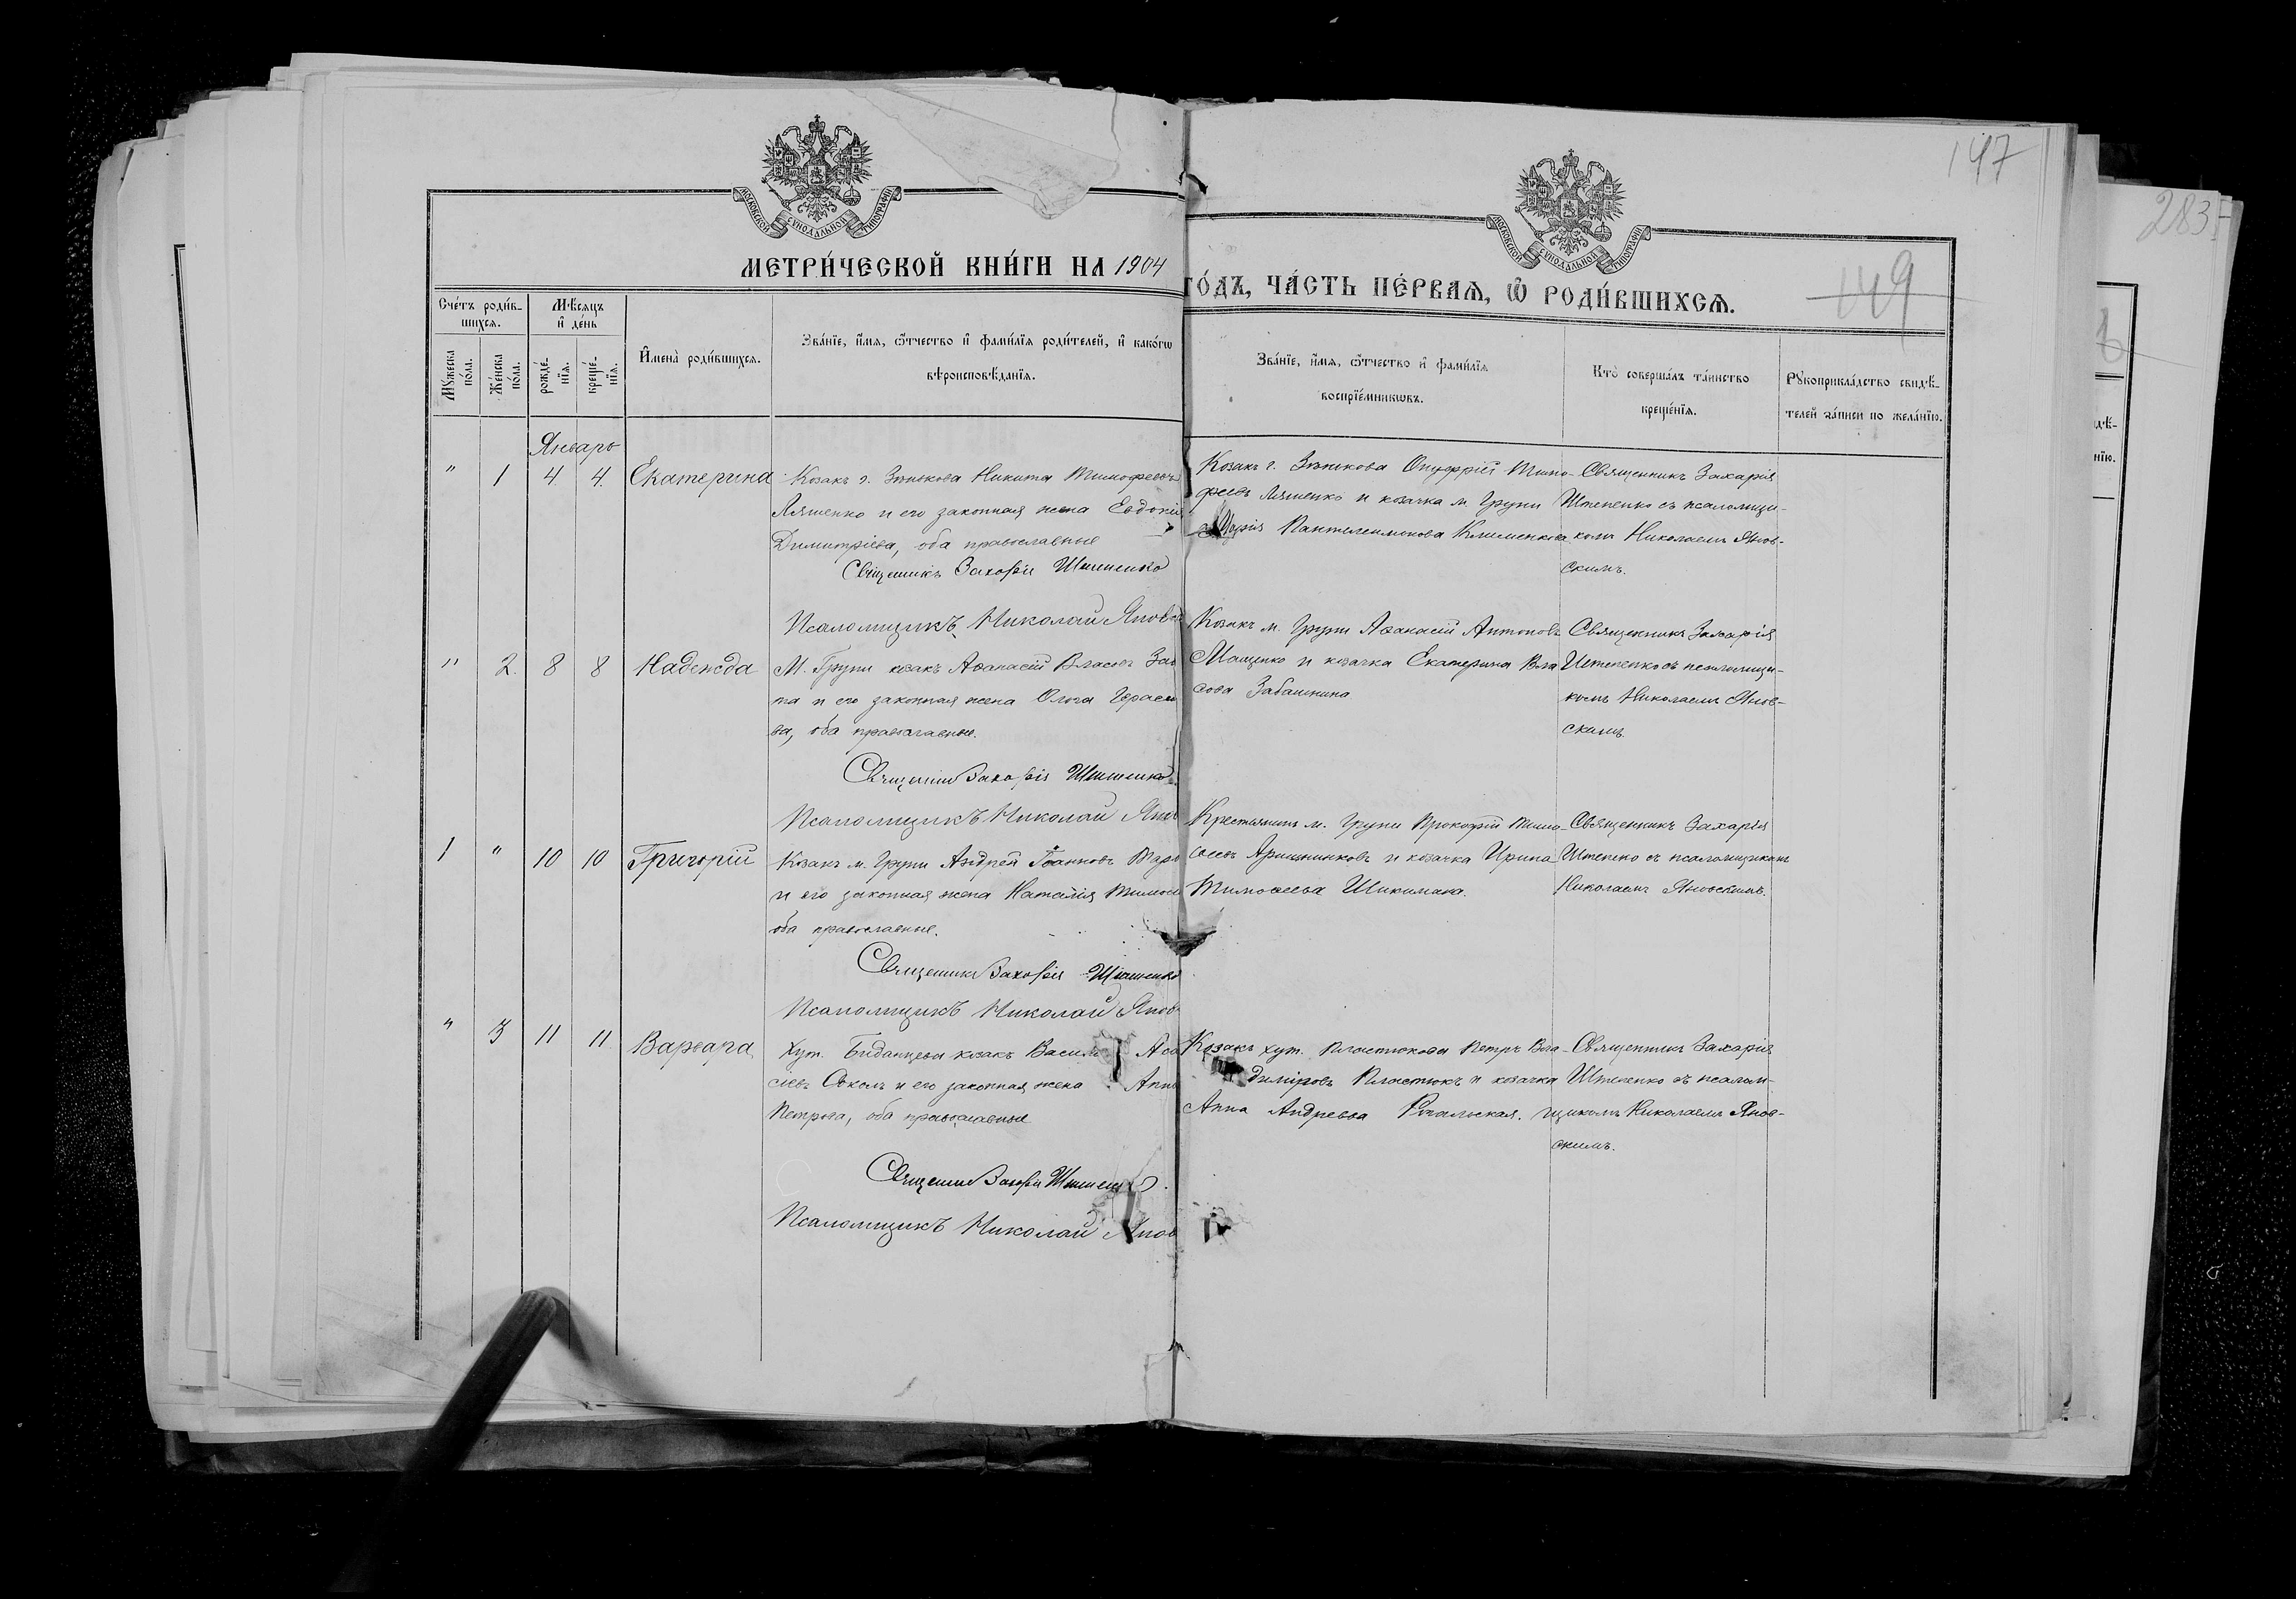 147
283
149
МОСКОВСКОЙ СѴНОДАЛЬНОЙ ТИПОГРАФІИ
МОСКОВСКОЙ СѴНОДАЛЬНОЙ ТИПОГРАФІИ
МЕТРИ́ЧЕСКОЙ КНИ́ГИ НА 1904
ГО́ДЪ, ЧА́СТЬ ПЕ́РВАѦ, Ѽ РОДИ́ВШИХСѦ.
Сче́тъ роди́в-
шихсѧ.
Мѣ́сѧцъ
и҆ де́нь
Мꙋ́жеска по́ла.
Же́нска по́ла.
рожде́-нїѧ.
креще́-нїѧ.
И҆мена̀ роди́вшихсѧ.
Зва́нїе, и҆́мѧ, ѻ҆́тчество и҆ фами́лїѧ роди́телей, и҆ како́гѡ
вѣроисповѣ́данїѧ.
Зва́нїе, и҆́мѧ, ѻ҆́тчество и҆ фами́лїѧ
воспрїе́мникѡвъ.
Кто̀ соверша́лъ та́инство
креще́нїѧ.
Рꙋкоприкла́дство свидѣ́-
телей за́писи по жела́нїю.
Январь
" 1 4 4 Екатерина
Козакъ г. Зѣнькова Никита Тимофеевъ
Ляшенко и его законная жена Евдокія
Димитріева, оба православные
Священникъ Захарія Штепенко
Псаломщикъ Николай Янов
Козакъ г. Зѣнькова Онуфрій Тимо-
феевъ Ляшенко и козачка м. Груни
Марія Пантелеимонова Клименкова
Священникъ Захарія
Штепенко съ псаломщи-
комъ Николаемъ Янов-
скимъ.
" 2. 8 8 Надежда
М. Груни козакъ Аѳанасій Власовъ Заб
та и его законная жена Ольга Герасим
ва, оба православные.
Священник Захарія Штепенко
Псаломщикъ Николай Янов
Козакъ м. Груни Аѳанасій Антоновъ
Мащенко и козачка Екатерина Вла
сова Забаштина
Священникъ Захарія
Штепенко съ псаломщи-
комъ Николаемъ Янов-
скимъ.
1 " 10 10 Григорій
Козакъ м. Груни Андрей Іоанновъ
и его законная жена Наталія Тимоѳе
оба православные.
Священник Захарія Штепенко
Псаломщикъ Николай Янов
Крестьянинъ м. Груни Прокофій Тимо-
ѳеевъ и козачка Ирина
Тимоѳеева Шикимака.
Священникъ Захарія
Штепенко съ псаломщикомъ
Николаемъ Яновскимъ.
" 3 11 11 Варвара
Хут. козакъ Васил
сіевъ Соколъ и его законная жена Анна
Петрова, оба православные
Священник Захарія Штепенко.
Псаломщикъ Николай Янов
Козакъ хут. Пластюкова Петръ Вла-
диміровъ Пластюкъ и козачка
Анна Андреева
Священникъ Захарія
Штепенко съ псалом-
щикомъ Николаемъ Янов-
скимъ.